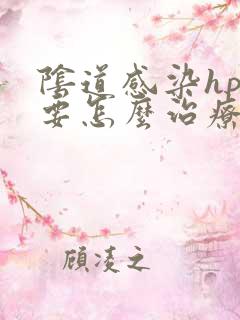 陰道感染hp
要怎麼治療
顧凌之